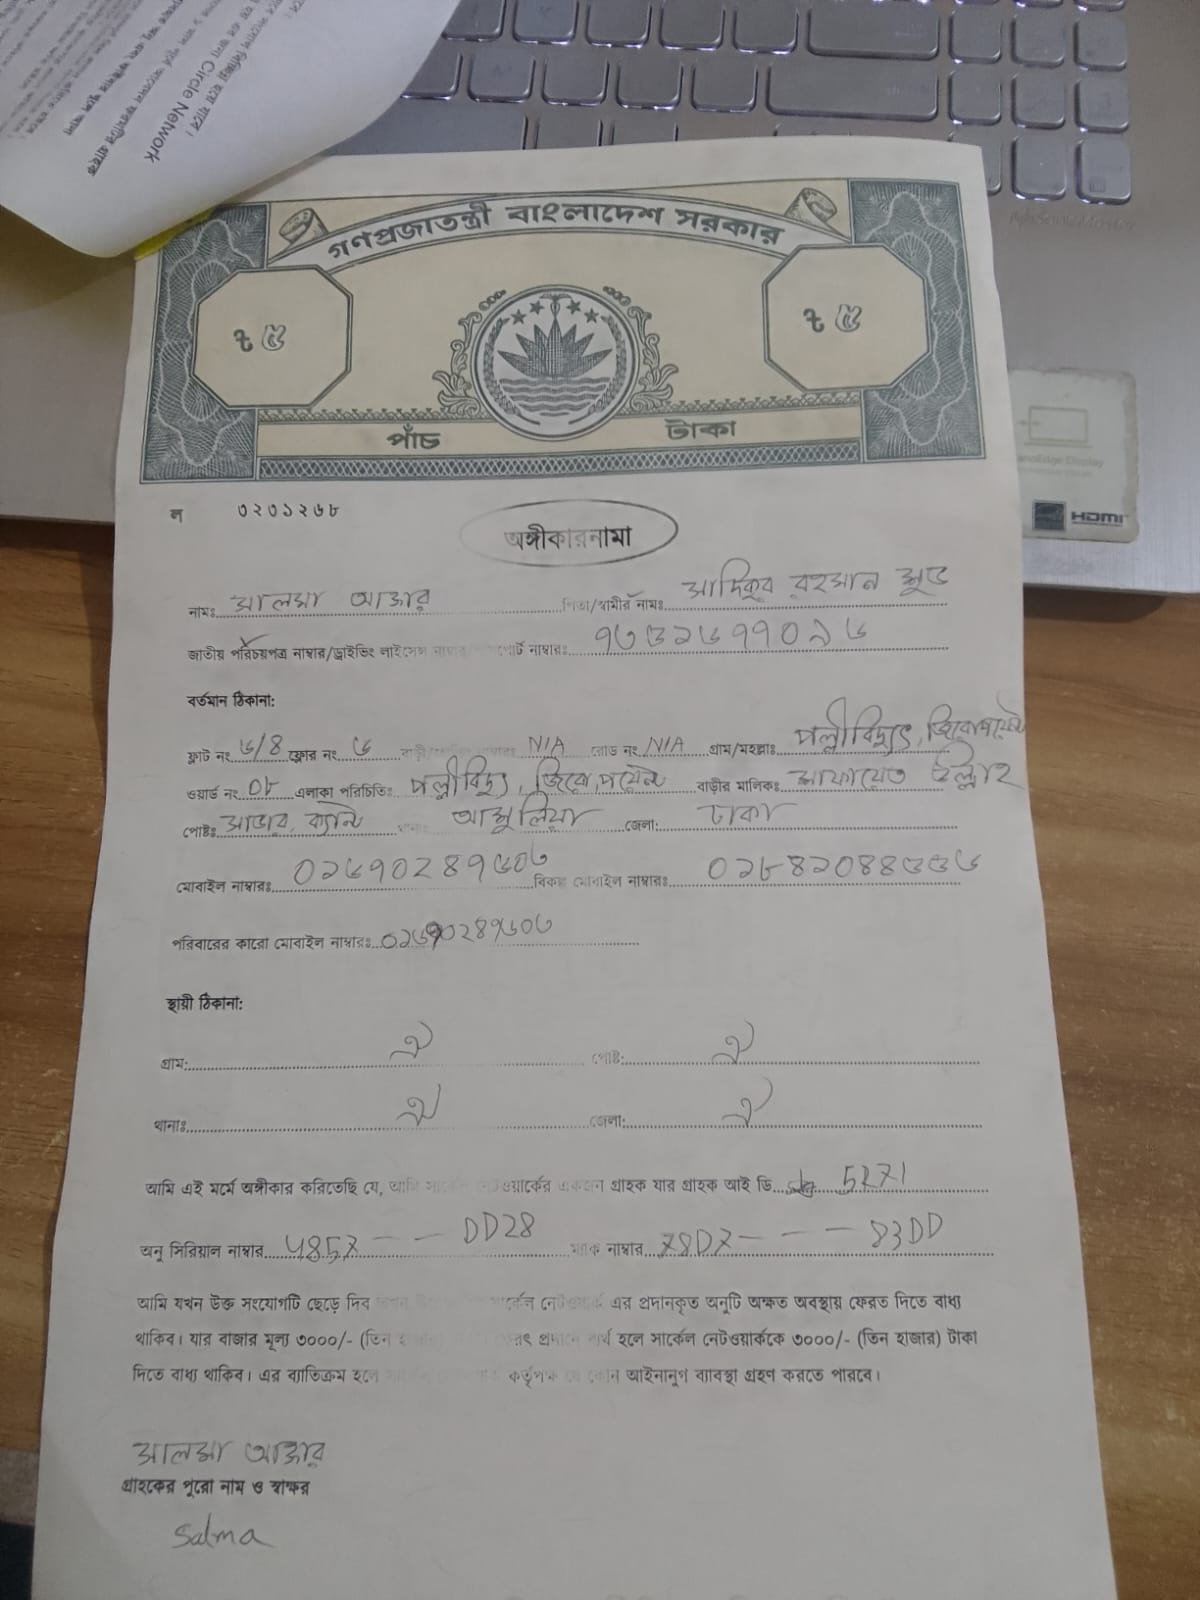 Circle Network
গণপ্রজাতন্ত্রী বাংলাদেশ সরকার
৳ ৫ ৳ ৫
পাঁচ টাকা
NanoEdge Display
HDMI
ল ৩২৩১২৬৮
অঙ্গীকারনামা
নামঃ সালমা আক্তার পিতা/স্বামীর নামঃ সাদিকুর রহমান
জাতীয় পরিচয়পত্র নাম্বার/ড্রাইভিং লাইসেন্স নাম্বার/পাসপোর্ট নাম্বারঃ
বর্তমান ঠিকানা:
ফ্লাট নং ৬/৪ ফ্লোর নং ৬ N/A রোড নং N/A গ্রাম/মহল্লাঃ পল্লীবিদ্যুৎ, জিরো পয়েন্ট
ওয়ার্ড নং ০৮ এলাকা পরিচিতিঃ পল্লীবিদ্যুৎ, জিরো, পয়েন্ট বাড়ীর মালিকঃ সাফায়েত উল্লাহ
পোষ্টঃ সাভার, ক্যান্ট আশুলিয়া জেলা: ঢাকা
মোবাইল নাম্বারঃ ০১৬৭০২৪৭৬০৩ বিকল্প মোবাইল নাম্বারঃ
পরিবারের কারো মোবাইল নাম্বারঃ ০১৬৭০২৪৭৬০৩
স্থায়ী ঠিকানা:
গ্রাম: ঐ পোষ্ট: ঐ
থানাঃ ঐ জেলা: ঐ
আমি এই মর্মে অঙ্গীকার করিতেছি যে, আমি সার্কেল নেটওয়ার্কের একজন গ্রাহক যার গ্রাহক আই ডি 5271
অনু সিরিয়াল নাম্বার 4857 - - DD28 ম্যাক নাম্বার 78D7 - - - 83DD
আমি যখন উক্ত সংযোগটি ছেড়ে দিব সার্কেল নেটওয়ার্ক এর প্রদানকৃত অনুটি অক্ষত অবস্থায় ফেরত দিতে বাধ্য
থাকিব। যার বাজার মূল্য ৩০০০/- (তিন ফেরৎ প্রদানে ব্যর্থ হলে সার্কেল নেটওয়ার্ককে ৩০০০/- (তিন হাজার) টাকা
দিতে বাধ্য থাকিব। এর ব্যাতিক্রম হলে কর্তৃপক্ষ যে কোন আইনানুগ ব্যাবস্থা গ্রহণ করতে পারবে।
সালমা আক্তার
গ্রাহকের পুরো নাম ও স্বাক্ষর
Salma